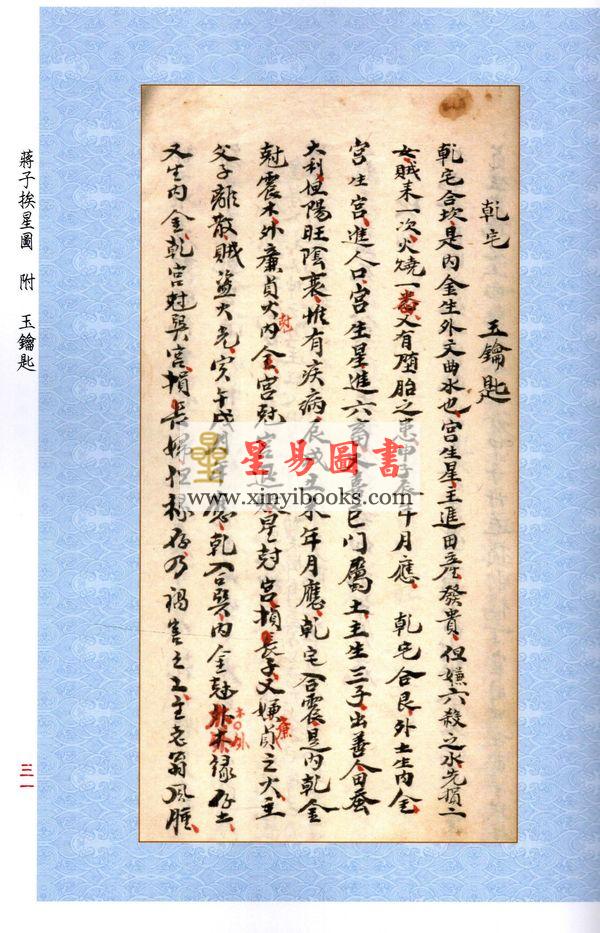 蔣子挨星圖 附 玉鑰匙
三一
玉鑰匙
乾宅
乾宅合坎是内金生外文曲水也宮生星主進田産發貴但嫌六殺之水先損二
女賊来一次火燒一畨又有堕胎之患申子辰年月應 乾宅合艮外土生内金
宮生宮進人口宮生星進六畜巨門屬土主生三子出善人田蚕
大利但陽旺陰衰堆有疾病辰戌丑未年月應乾宅合震是内乾金
尅震木外廉貞火内尅金宮尅宮退星尅宮損長子又嫌廉貞之火主
父子離散賊盗火光寅午戌月年應乾合巽内金尅外木木外禄存土
又生内金乾宮尅巽宮損長婦但禄存乃禍害之土主老翁风腫
星易圖書
www.xinyibooks.com